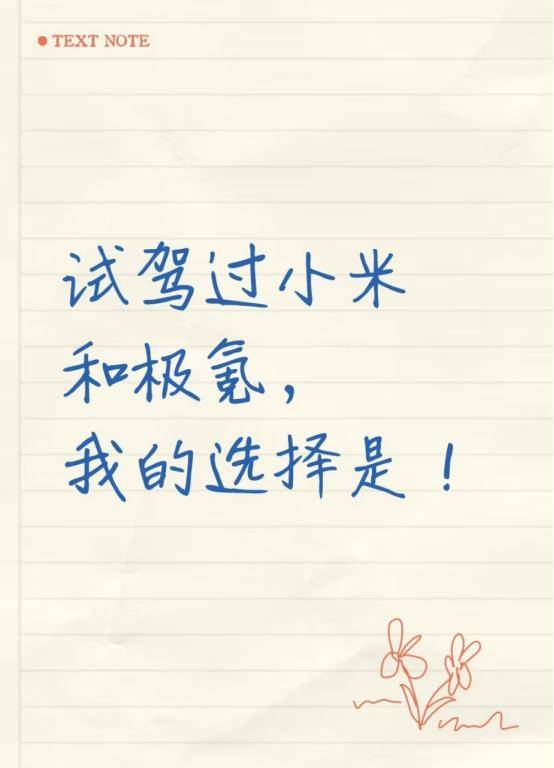 TEXT NOTE
试驾过小米
和极氪，
我的选择是！